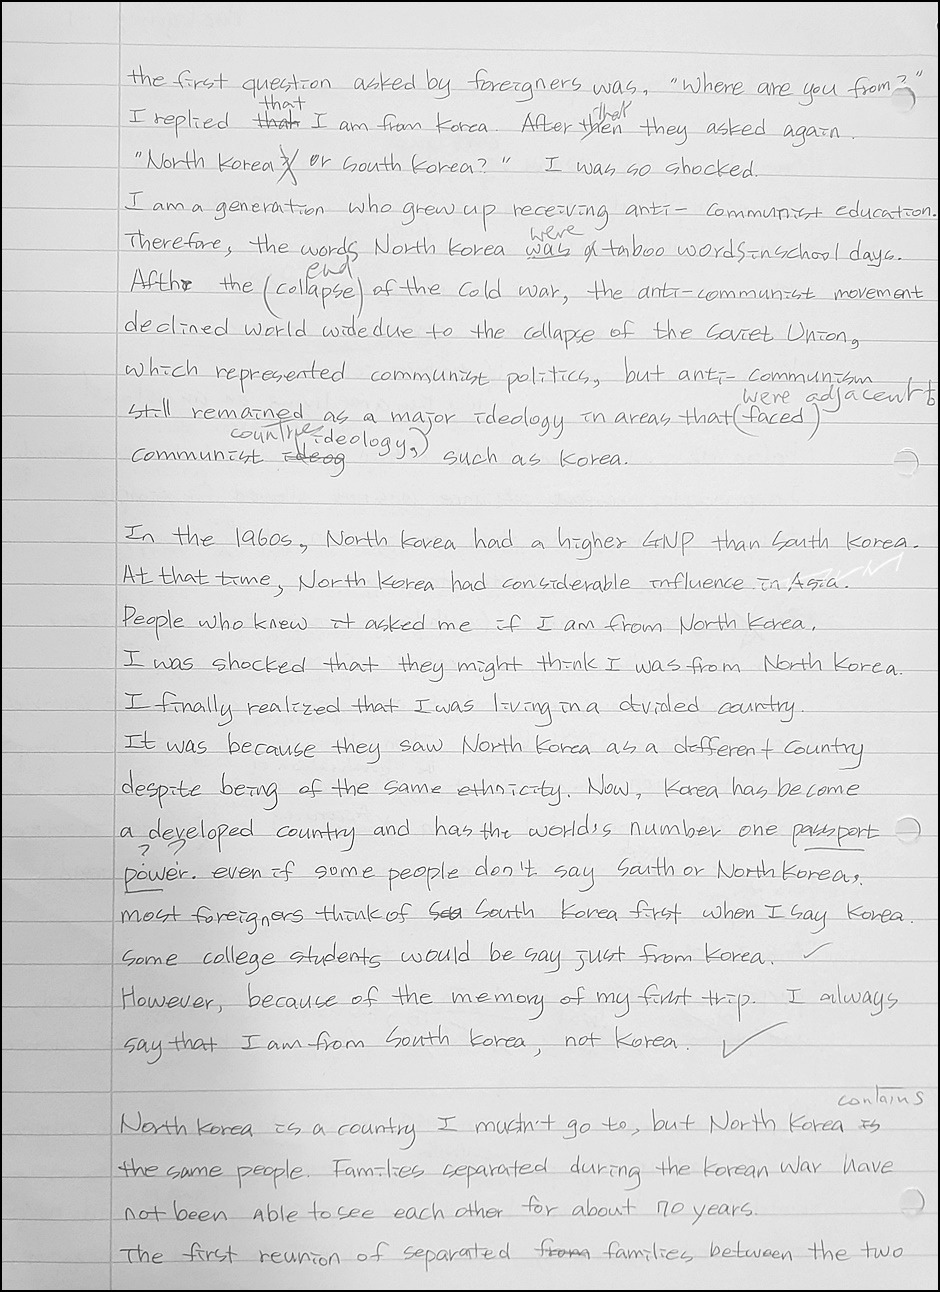 the first question asked by foreigners was, "Where are you from?"
that
I replied that I am from Korea. After then they asked again.
that
"North Korea? or South Korea?" I was so shocked.
I am a generation who grew up receiving anti-communist education.
were
Therefore, the words North Korea was a taboo words in school days.
end
After the (collapse) of the Cold War, the anti-communist movement
declined world wide due to the collapse of the Soviet Union,
which represented communist politics, but anti-communism
were adjacent to
still remained as a major ideology in areas that (faced)
countries ideology,)
communist ideog such as Korea.
In the 1960s, North Korea had a higher GNP than South Korea.
At that time, North Korea had considerable influence in Asia.
People who knew it asked me if I am from North Korea.
I was shocked that they might think I was from North Korea.
I finally realized that I was living in a divided country.
It was because they saw North Korea as a defferent country
despite being of the same ethnicity. Now, Korea has become
a developed country and has the world's number one passport
? ?
power. even if some people don't say South or North Korea,
most foreigners think of Sou South Korea first when I say Korea.
Some college students would be say just from Korea. ✓
However, because of the memory of my first trip. I always
say that I am from South Korea, not Korea. ✓
contains
North Korea is a country I mustn't go to, but North Korea is
the same people. Families separated during the Korean War have
not been able to see each other for about 70 years.
The first reunion of separated from families between the two